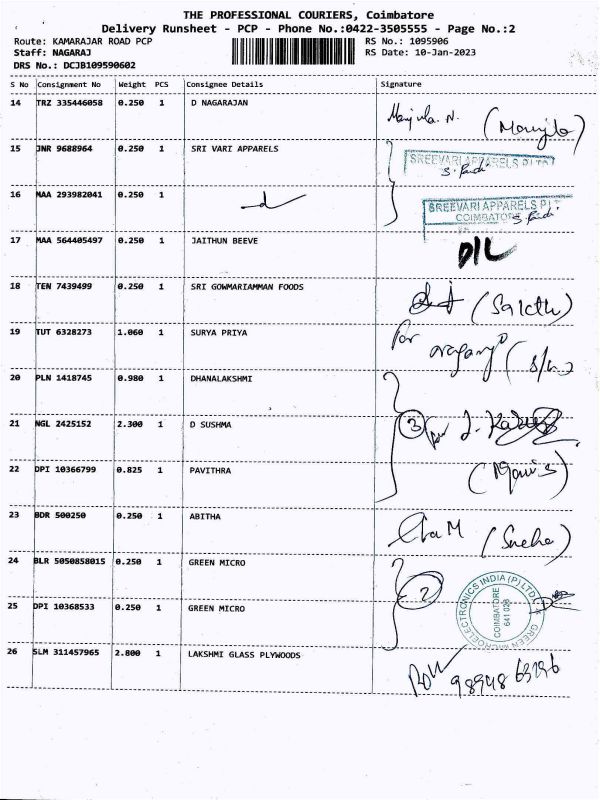 THE PROFESSIONAL COURIERS, Coimbatore
Delivery Runsheet - PCP - Phone No.:0422-3505555 - Page No.:2
Route: KAMARAJAR ROAD PCP RS No.: 1095906
Staff: NAGARAJ RS Date: 10-Jan-2023
DRS No.: DCJB109590602
S No Consignment No Weight PCS Consignee Details Signature
14 TRZ 335446058 0.250 1 D NAGARAJAN Manjula. N. (Manjula)
15 JNR 9688964 0.250 1 SRI VARI APPARELS SREEVARI APPARELS P LTD
16 MAA 293982041 0.250 1 SREEVARI APPARELS P LT
COIMBATORE
17 MAA 564405497 0.250 1 JAITHUN BEEVE D/L
18 TEN 7439499 0.250 1 SRI GOWMARIAMMAN FOODS
19 TUT 6328273 1.060 1 SURYA PRIYA For
20 PLN 1418745 0.980 1 DHANALAKSHMI
21 NGL 2425152 2.300 1 D SUSHMA 3
22 DPI 10366799 0.825 1 PAVITHRA
23 BDR 500250 0.250 1 ABITHA (Sneha)
24 BLR 5050858015 0.250 1 GREEN MICRO 2
GREEN MICROELECTRONICS INDIA (P) LTD
COIMBATORE
641 028
25 DPI 10368533 0.250 1 GREEN MICRO
26 SLM 311457965 2.800 1 LAKSHMI GLASS PLYWOODS